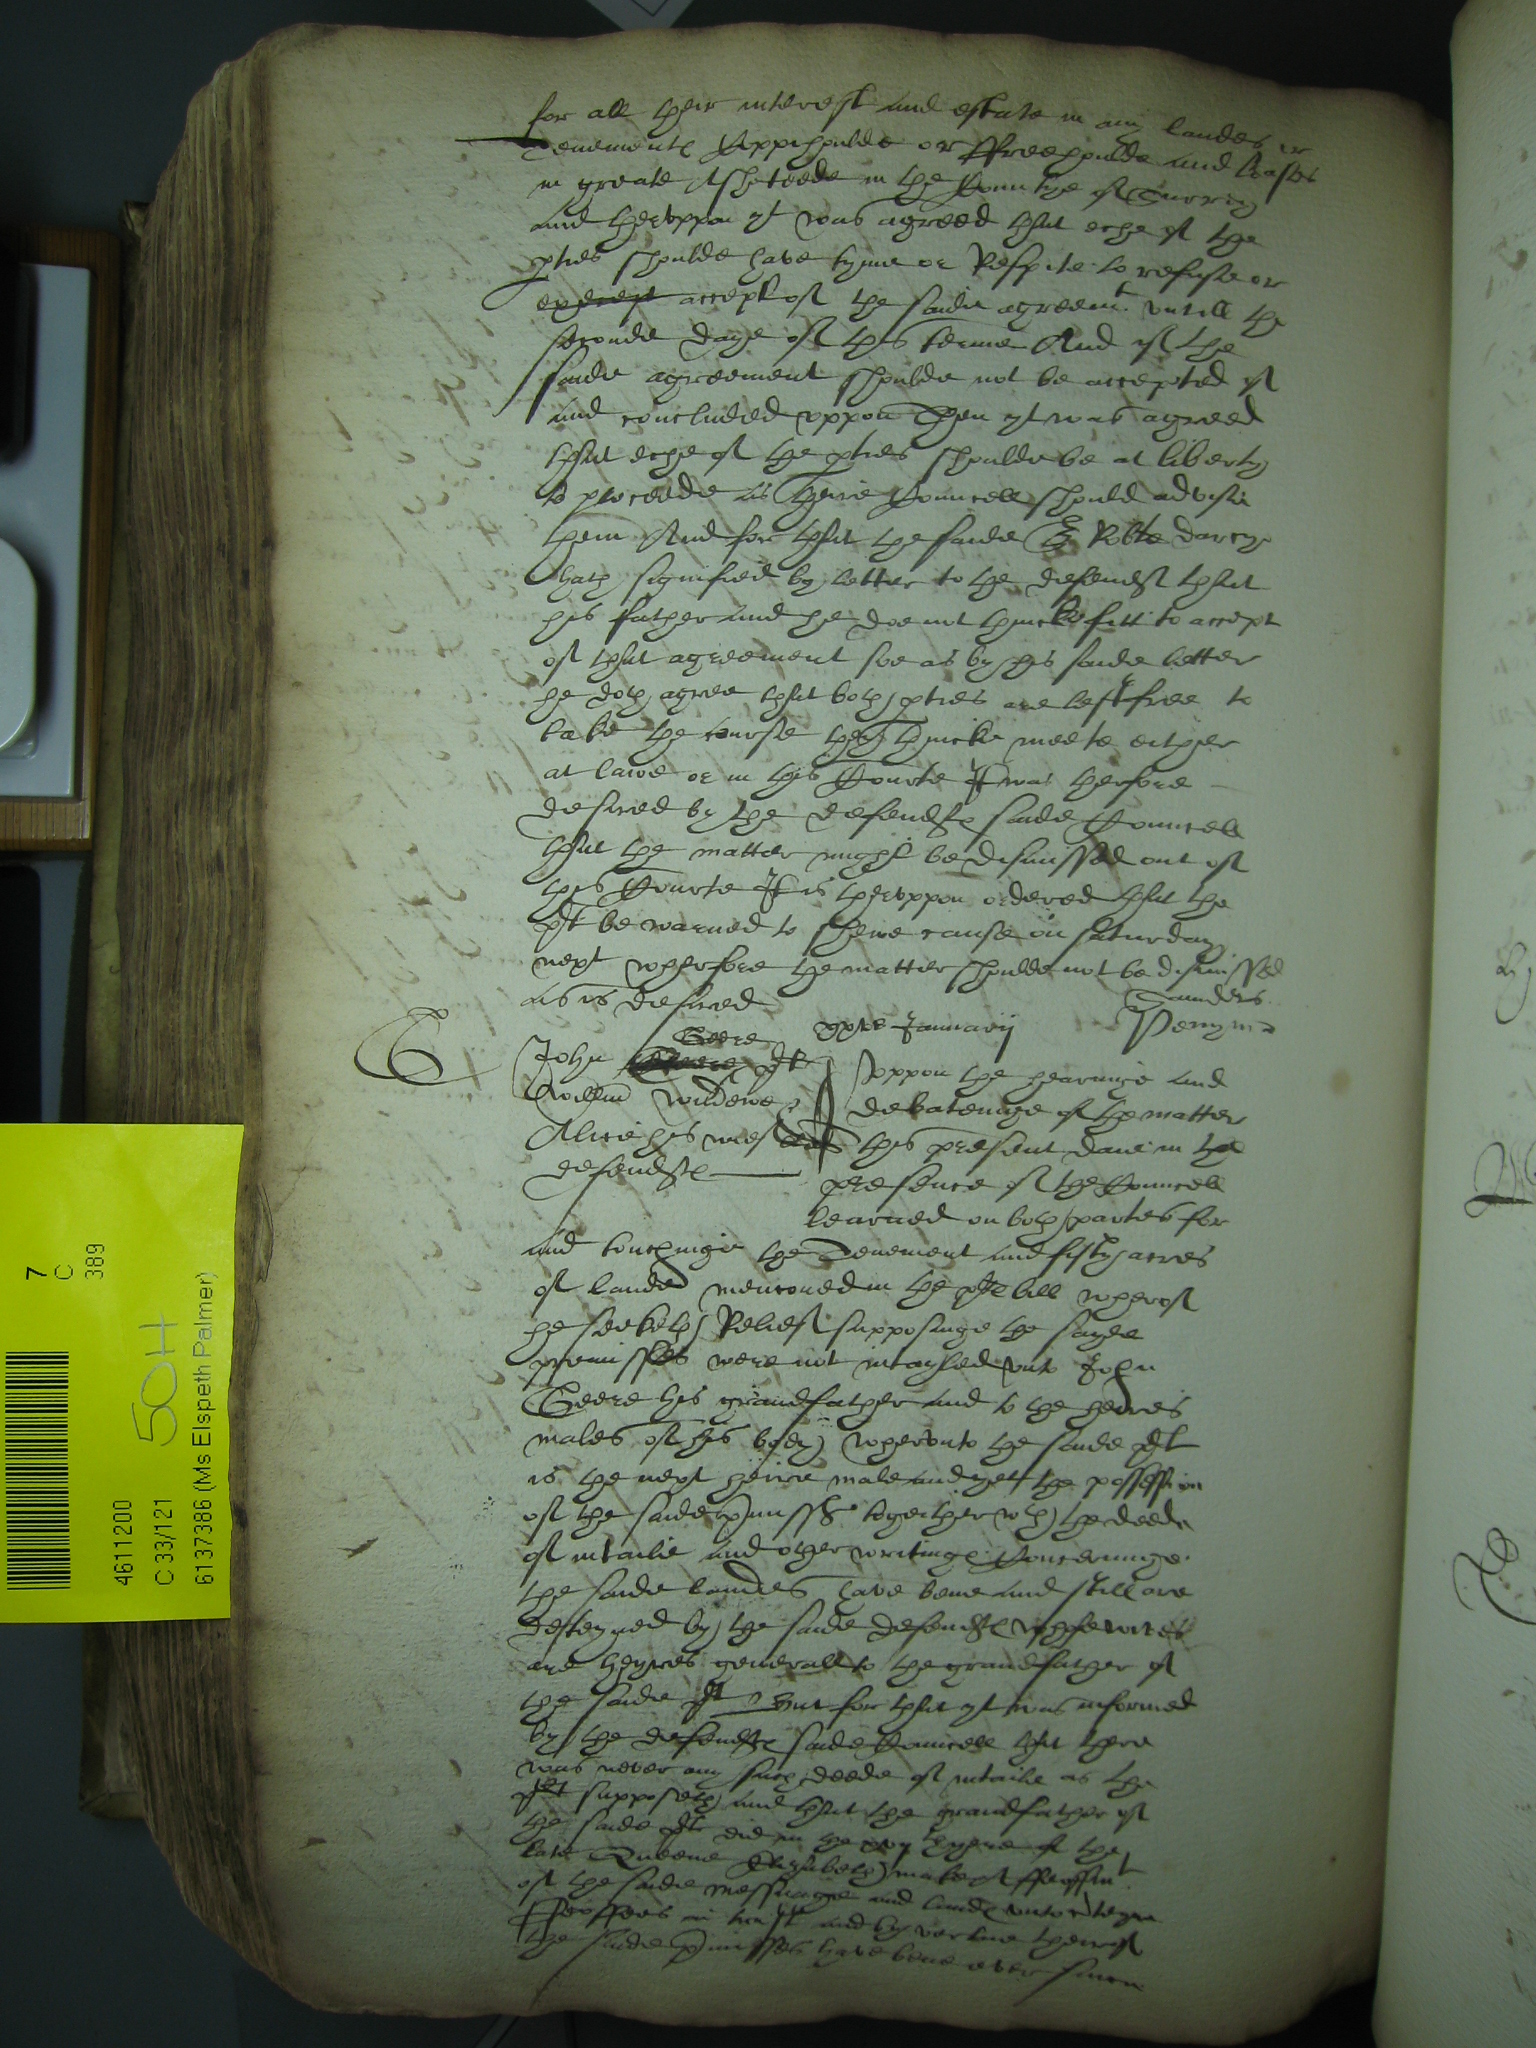 for all their interest and estate in any landes or
tenementes Coppihoulde or ffreehoulde and leases
in greate Ashteede in the Countye of Surrey
And heruppon yt was agreed that eche of the
pties shoulde have tyme or Respite to refuse or
accept of the saide agreemt untill the
seconde daye of this terme And if the
saide agreement shoulde not be accepted of
and concluded uppon Then yt was agreed
that eche of the pties shoulde be at liberty
to proceede as theire Councell should advise
them And for that the saide Sr Robte darcye
hath signified by letter to the defendt that
his father and he doe not thincke fitt to accept
of that agreement soe as by his saide letter
he doth agree that both pties are left free to
take the course they thincke meete either
at lawe or in this Courte It was therfore
desired by the defendtes saide Councell
that the matter might be dismissed out of
this Courte It is theruppon ordered that the
plt be warned to shewe cause on Saturday
next wherfore the matter shoulde not be dismissed
as is desired
Saunders
xxixo January
Penyman
John Geere plt
Willm Windewe &
Alice his wief
defendtes
Uppon the hearinge and
debateinge of the matter
this present daie in the
presence of the Councell
learned on both partes for
and touchinge the Tenement and fifty acres
of lande mencioned in the pltes bill wherof
he seeketh Relief supposinge the sayde
premisses were intayled unto John
Geere his grandfather and to the heires
males of his body wherunto the saide plt
is the next heire male and yet the possession
of the saide pmisses together wth the deede
of intaile and other writinges Concerninge
the saide landes have bene and still are
deteyned by the saide defendtes whose wives
are heyres generall to the grandfather of
the saide plt But for that yt was informed
by the defendtes saide Councell that there
was never any such deede of intaile as the
plt supposeth and that the grandfather of
the saide plt did in the yere of the
late Queene Elizabeth make a ffeoffmt
of the saide messuage and landes unto certeyne
ffeoffees in trust and by vertue therof
the saide pmisses have bene ever since
4611200
C 33/121
6137386 (Ms Elspeth Palmer)
7
C
389
50H